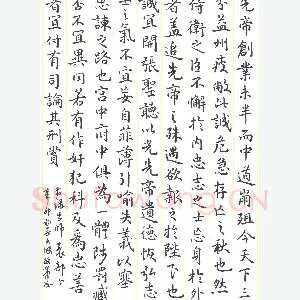 先帝創業未半而中道崩殂今天下三
分益州疲敝此誠危急存亡之秋也然
侍衛之臣不懈於內忠志之士忘身於外
者蓋追先帝之殊遇欲報之於陛下也
誠宜開張聖聽以光先帝遺德恢弘志
士之氣不宜妄自菲薄引喻失義以塞
忠諫之路也宮中府中俱為一體陟罰臧
否不宜異同若有作奸犯科及為忠善
者宜付有司論其刑賞
出師表部分